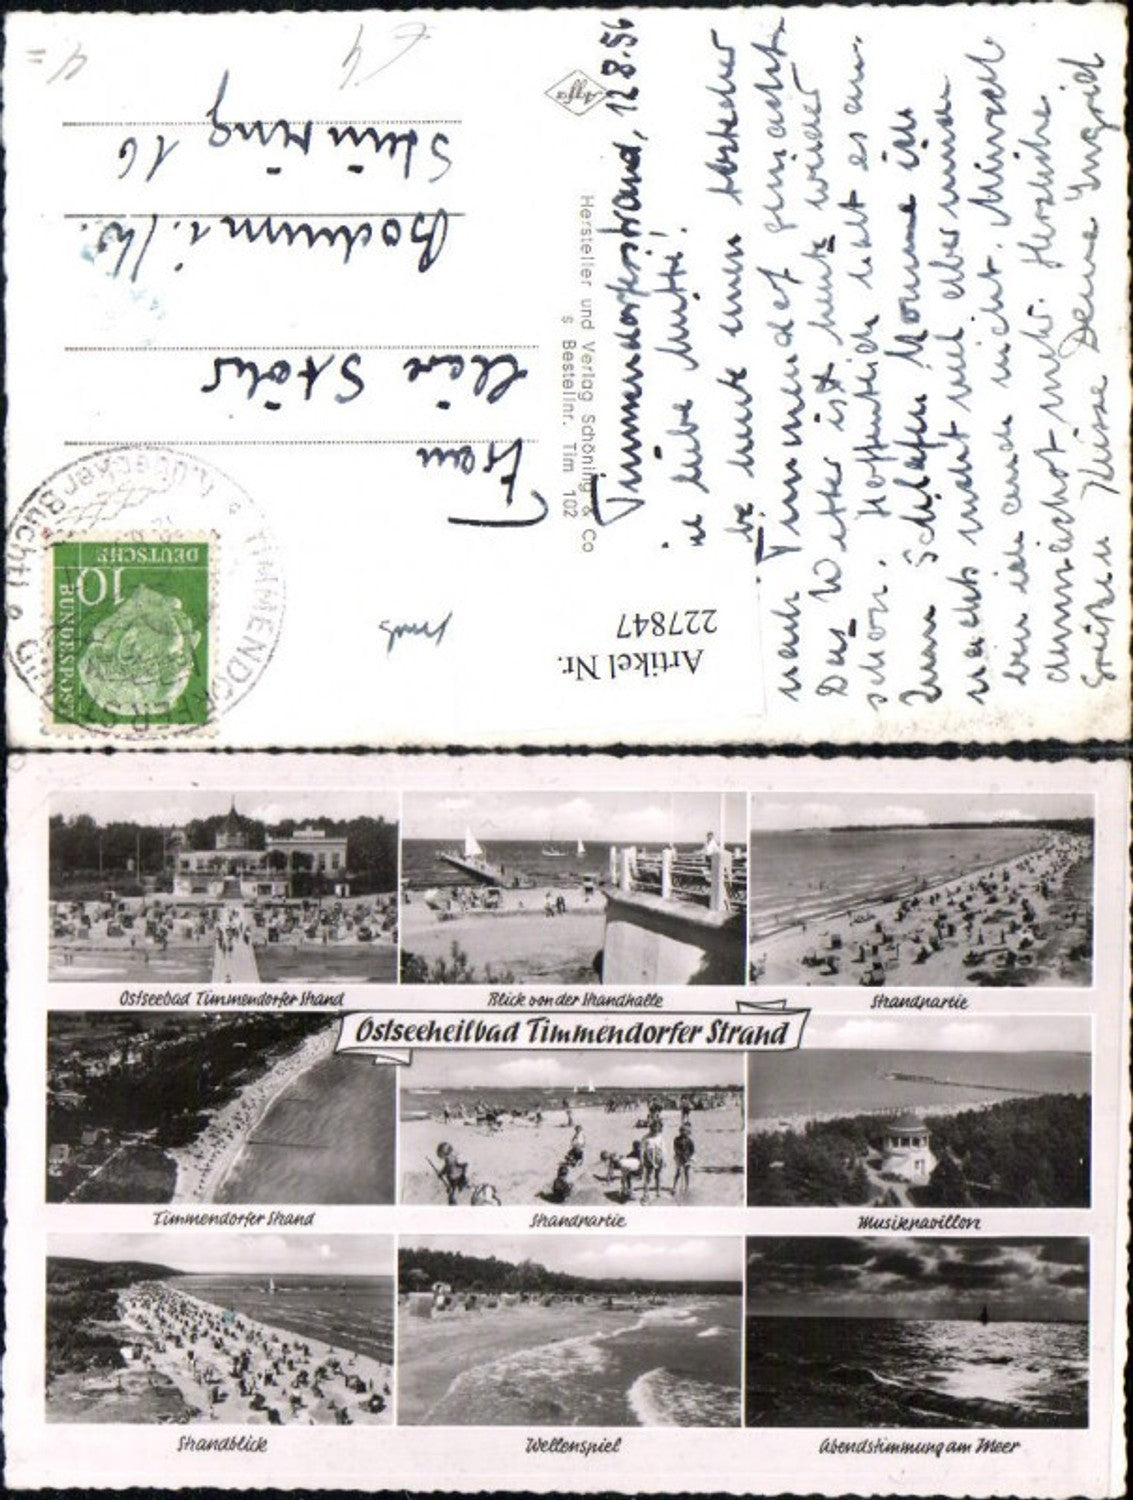 Timmendorferstrand, 12.8.56
Liebe Mutti!
heute einen
nach Timmendf gemacht.
Das Wetter ist heute wieder
schön. Hoffentlich hält es an.
Zum Schlafen komme ich
nachts nicht viel aber müde
bin ich auch nicht.
Herzliche
Grüße u Küsse Deine Ingrid
Agfa
Hersteller und Verlag Schöning & Co
s Bestellnr. Tim 102
Frau
Stöhr
Bochum i./W.
Steinring 16
10
DEUTSCHE
BUNDESPOST
TIMMENDORFER STRAND
(Lübecker Bucht)
Artikel Nr.
227847
Ostseebad Timmendorfer Strand
Blick von der Strandhalle
Strandpartie
Ostseeheilbad Timmendorfer Strand
Timmendorfer Strand
Strandpartie
Musikpavillon
Strandblick
Wellenspiel
Abendstimmung am Meer